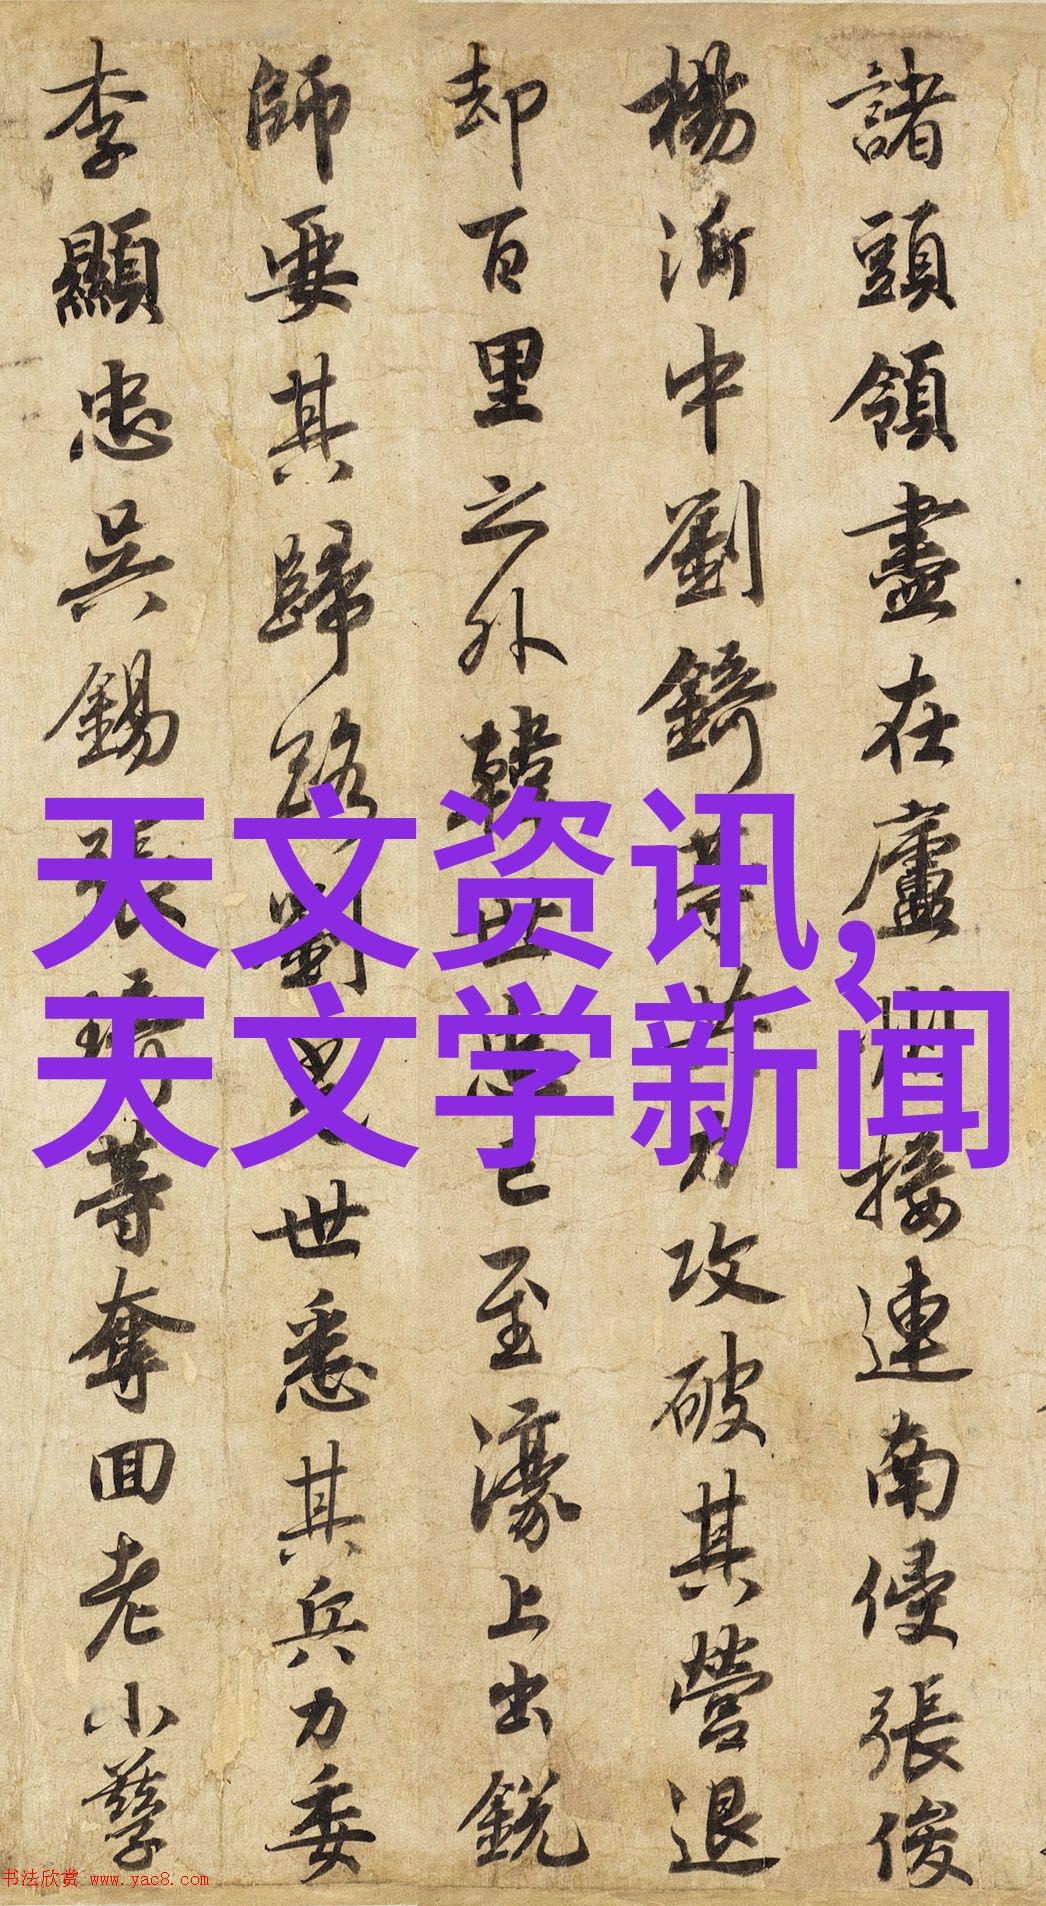 諸頭領盡在廬州接連南侵張俊
楊沂中劉錡等共力攻破其營退
却百里之外韓世忠已至濠上出銳
師要其歸路劉光世悉其兵力委
李顯忠吳錫張琦等奪回老小孳
天文资讯,
天文学新闻
书法欣赏 www.yac8.com